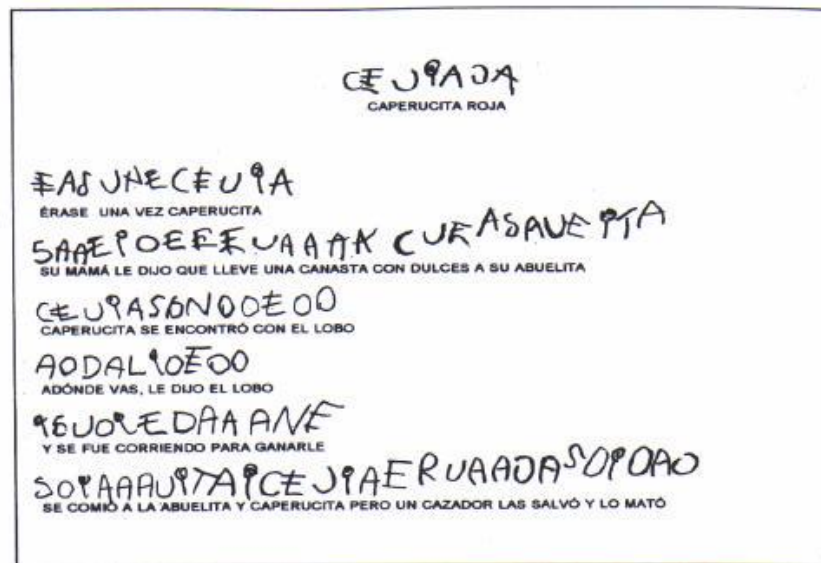 CEJIAOA
CAPERUCITA ROJA
EASUNECEUIA
ÉRASE UNA VEZ CAPERUCITA
SAAEIOEEEUAAAK CUEASAUEITA
SU MAMÁ LE DIJO QUE LLEVE UNA CANASTA CON DULCES A SU ABUELITA
CEUIASONOOEOO
CAPERUCITA SE ENCONTRÓ CON EL LOBO
AODALIOEOO
ADÓNDE VAS, LE DIJO EL LOBO
IEUOIEDAAANE
Y SE FUE CORRIENDO PARA GANARLE
SOIAAAUITAICEJIAERUAADASOIOAO
SE COMIÓ A LA ABUELITA Y CAPERUCITA PERO UN CAZADOR LAS SALVÓ Y LO MATÓ